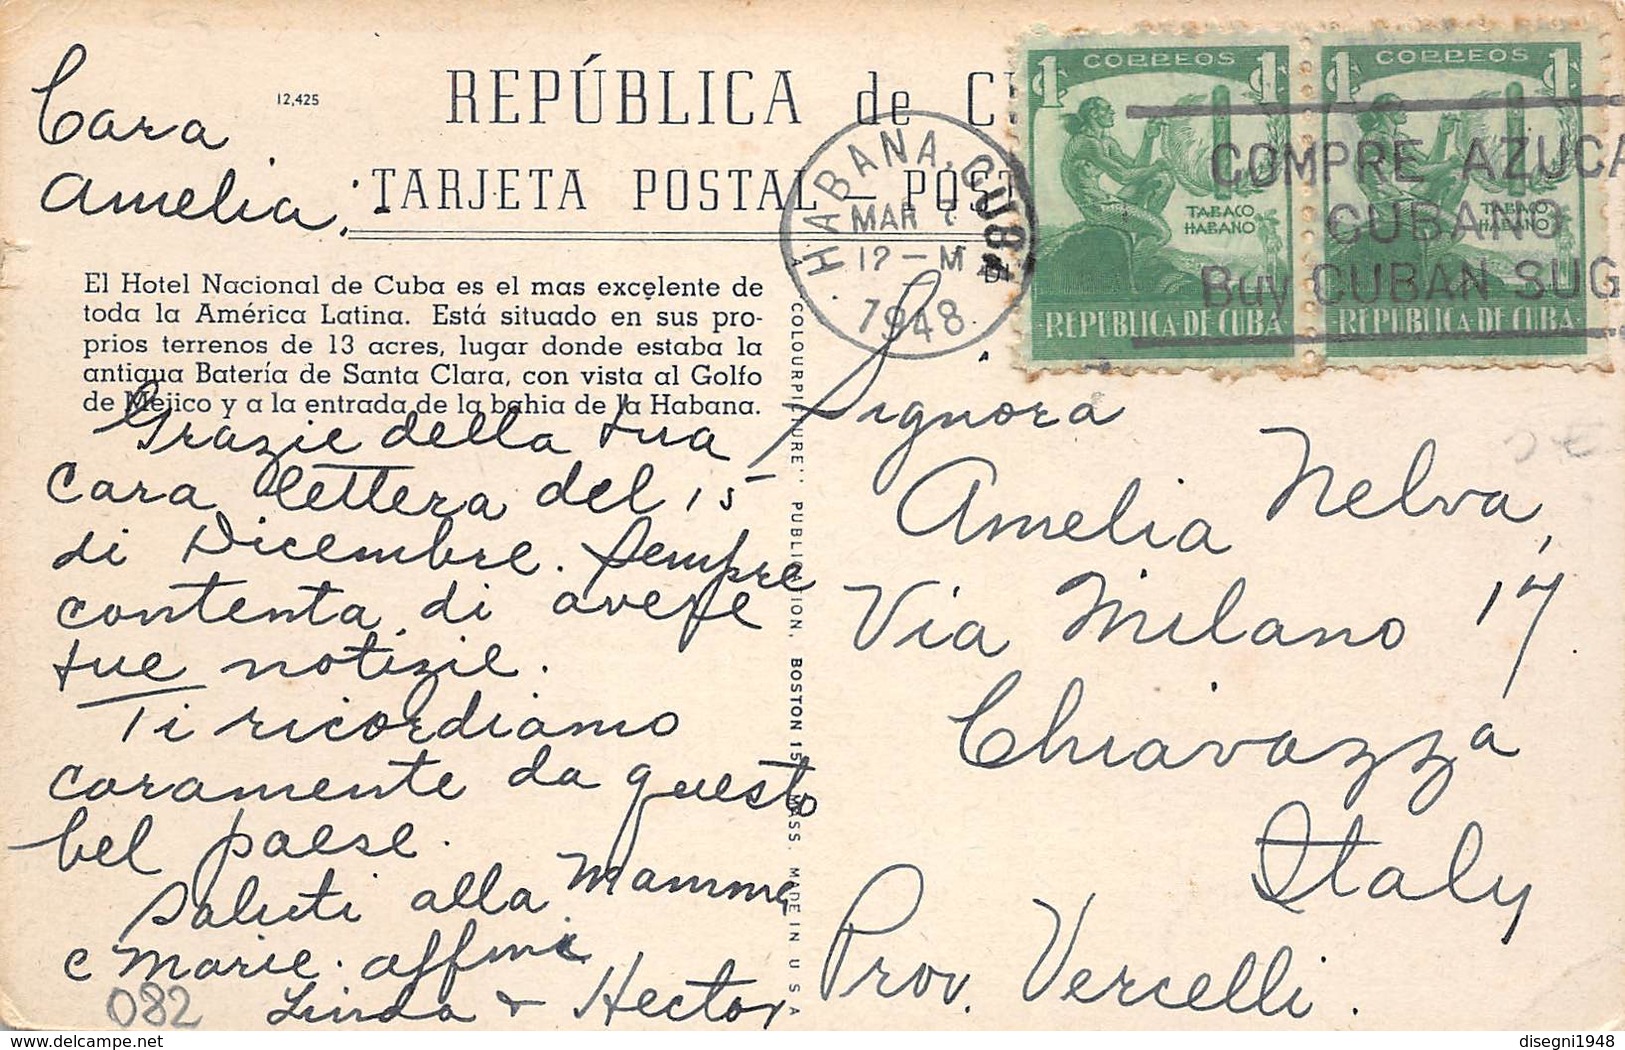 Cara
Amelia,
12,425
REPÚBLICA de C
TARJETA POSTAL — POST
HABANA, CUBA
MAR 7
12 - M
1948
CORREOS
1 1
TABACO
HABANO
REPUBLICA DE CUBA
CORREOS
1 1
TABACO
HABANO
REPUBLICA DE CUBA
COMPRE AZUCA
CUBANO
Buy CUBAN SUG
El Hotel Nacional de Cuba es el mas excelente de
toda la América Latina. Está situado en sus pro-
prios terrenos de 13 acres, lugar donde estaba la
antigua Batería de Santa Clara, con vista al Golfo
de Mejico y a la entrada de la bahia de la Habana.
Grazie della tua
cara lettera del 15
di Dicembre. Sempre
contenta di avere
tue notizie.
Ti ricordiamo
caramente da questo
bel paese.
Saluti alla Mamma
e Marie. affmi
Linda & Hector
082
COLOURPICTURE PUBLICATION, BOSTON 15, MASS. MADE IN U S A
Signora
Amelia Nelva,
Via Milano 17
Chiavazza
Italy
Prov. Vercelli.
disegni1948